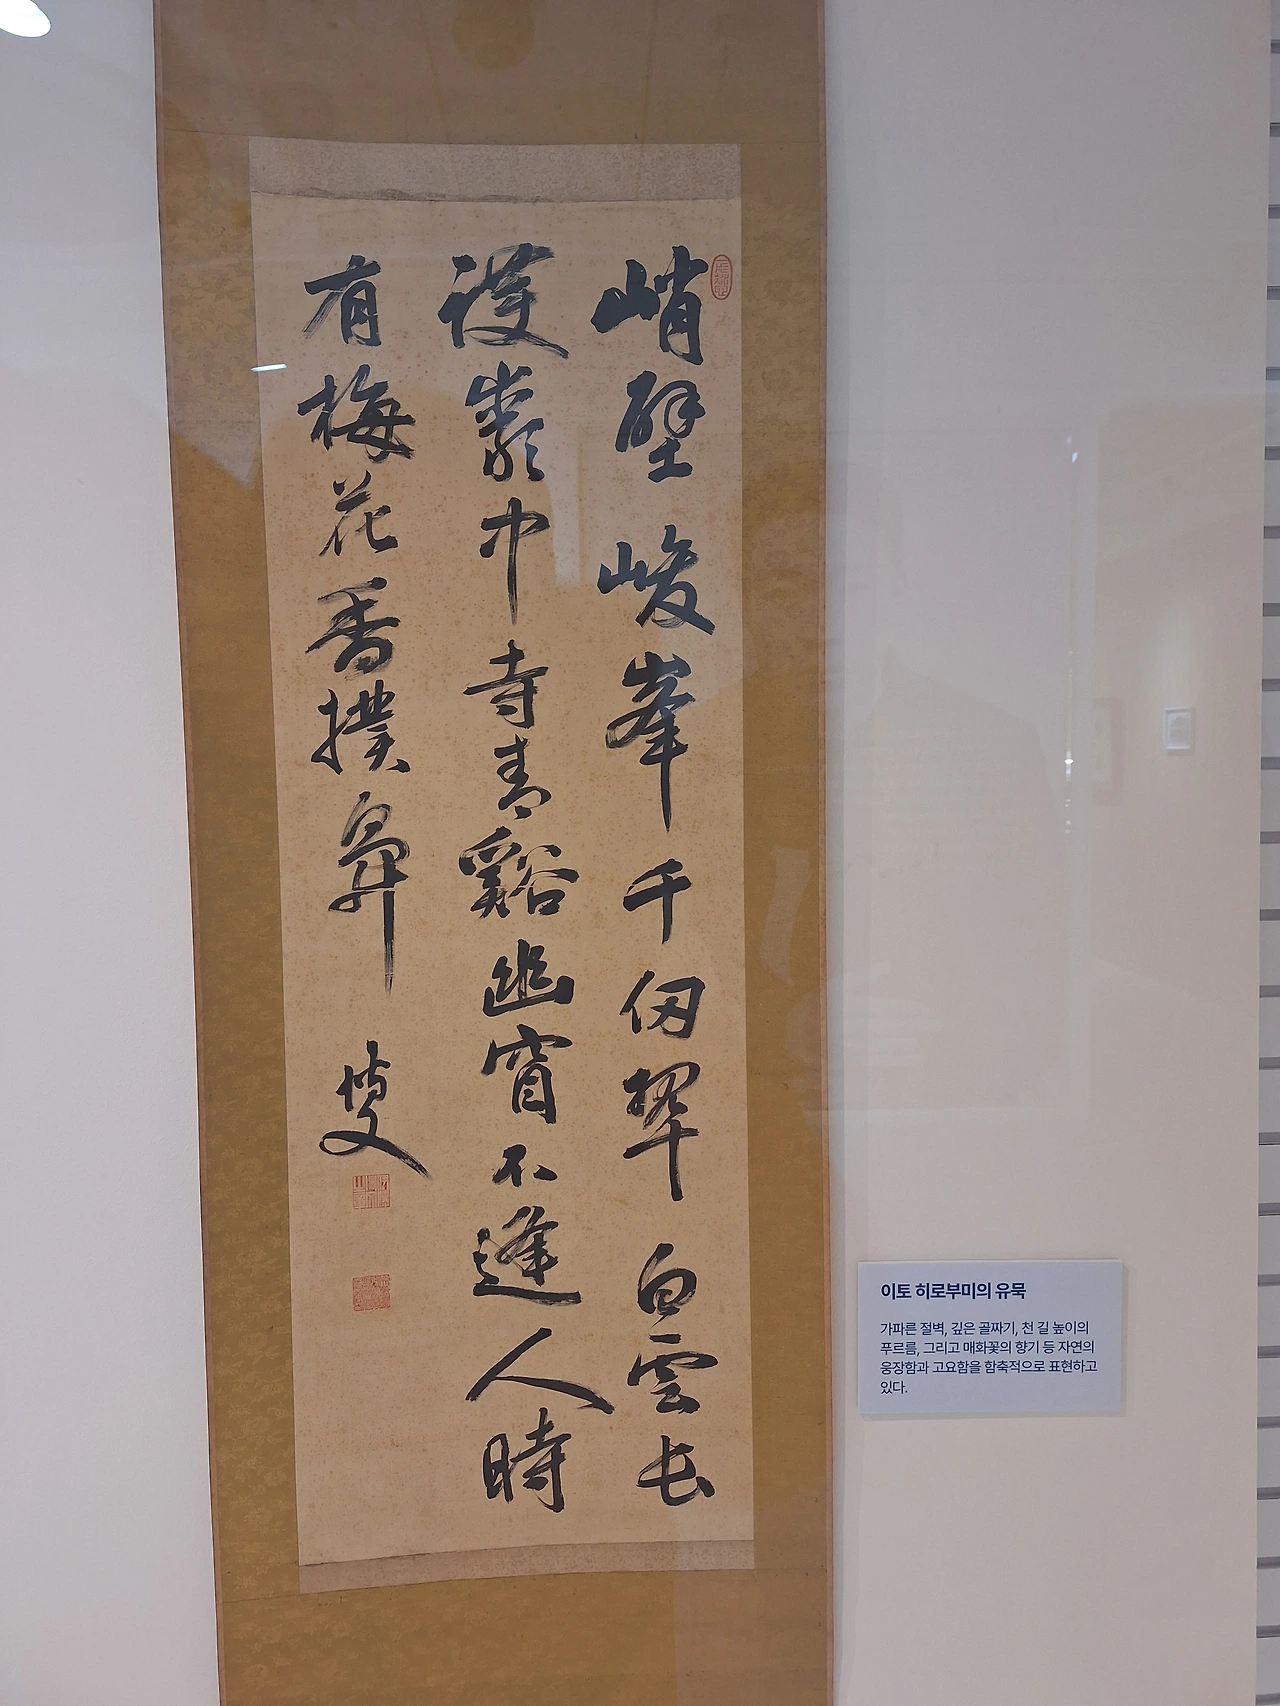 峭壁峻峯千仞翠白雲長
護巖中寺青谿幽窅不逢人時
有梅花香撲鼻
博文
이토 히로부미의 유묵
가파른 절벽, 깊은 골짜기, 천 길 높이의
푸르름, 그리고 매화꽃의 향기 등 자연의
웅장함과 고요함을 함축적으로 표현하고
있다.